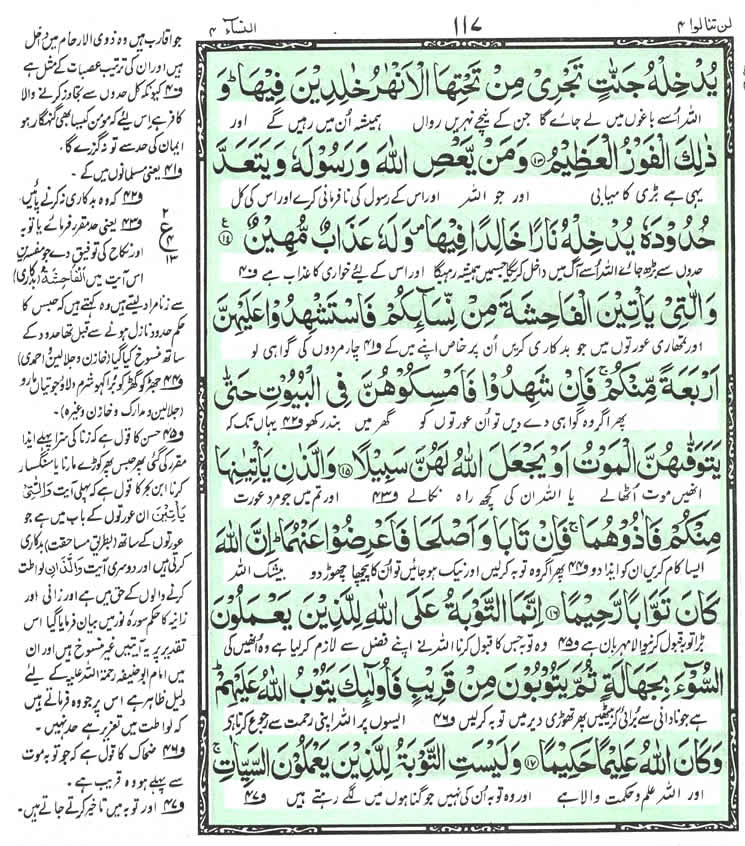 لن تنالوا ۴
۱۱۷
النساء ۴
يُدْخِلْهُ جَنّٰتٍ تَجْرِیْ مِنْ تَحْتِهَا الْاَنْهٰرُ خٰلِدِیْنَ فِیْهَا ؕ وَ
اللہ اُسے باغوں میں لے جائے گا جن کے نیچے نہریں رواں ہمیشہ اُن میں رہیں گے اور
ذٰلِكَ الْفَوْزُ الْعَظِیْمُ ﴿۱۳﴾ وَمَنْ یَّعْصِ اللّٰهَ وَرَسُوْلَهٗ وَیَتَعَدَّ
یہی ہے بڑی کامیابی اور جو اللہ اور اس کے رسول کی نافرمانی کرے اور اس کی کل
حُدُوْدَهٗ یُدْخِلْهُ نَارًا خَالِدًا فِیْهَا ۪ وَلَهٗ عَذَابٌ مُّهِیْنٌ ﴿۱۴﴾
حدوں سے بڑھ جائے اللہ اُسے آگ میں داخل کریگا جسمیں ہمیشہ رہیگا اور اس کے لئے خواری کا عذاب ہے ف۴۰
وَالّٰتِیْ یَاْتِیْنَ الْفَاحِشَةَ مِنْ نِّسَآىِٕكُمْ فَاسْتَشْهِدُوْا عَلَیْهِنَّ
اور تمھاری عورتوں میں جو بدکاری کریں اُن پر خاص اپنے میں کے ف۴۱ چار مردوں کی گواہی لو
اَرْبَعَةً مِّنْكُمْ ۚ فَاِنْ شَهِدُوْا فَاَمْسِكُوْهُنَّ فِی الْبُیُوْتِ حَتّٰی
پھر اگر وہ گواہی دے دیں تو اُن عورتوں کو گھر میں بند رکھو ف۴۲ یہاں تک کہ
یَتَوَفّٰىهُنَّ الْمَوْتُ اَوْ یَجْعَلَ اللّٰهُ لَهُنَّ سَبِیْلًا ﴿۱۵﴾ وَالَّذٰنِ یَاْتِیٰنِهَا
انھیں موت اُٹھالے یا اللہ ان کی کچھ راہ نکالے ف۴۳ اور تم میں جو مرد عورت
مِنْكُمْ فَاٰذُوْهُمَا ۚ فَاِنْ تَابَا وَاَصْلَحَا فَاَعْرِضُوْا عَنْهُمَا ؕ اِنَّ اللّٰهَ
ایسا کام کریں ان کو ایذا دو ف۴۴ پھر اگر وہ توبہ کرلیں اور نیک ہوجائیں تو اُن کا پیچھا چھوڑ دو بیشک اللہ
كَانَ تَوَّابًا رَّحِیْمًا ﴿۱۶﴾ اِنَّمَا التَّوْبَةُ عَلَی اللّٰهِ لِلَّذِیْنَ یَعْمَلُوْنَ
بڑا توبہ قبول کرنیوالا مہربان ہے ف۴۵ وہ توبہ جس کا قبول کرنا اللہ نے اپنے فضل سے لازم کرلیا ہے وہ انھیں کی
السُّوْٓءَ بِجَهَالَةٍ ثُمَّ یَتُوْبُوْنَ مِنْ قَرِیْبٍ فَاُولٰٓىِٕكَ یَتُوْبُ اللّٰهُ عَلَیْهِمْ ؕ
ہے جو نادانی سے بُرائی کر بیٹھیں پھر تھوڑی دیر میں توبہ کرلیں ف۴۶ ایسوں پر اللہ اپنی رحمت سے رجوع کرتا ہے
وَكَانَ اللّٰهُ عَلِیْمًا حَكِیْمًا ﴿۱۷﴾ وَلَیْسَتِ التَّوْبَةُ لِلَّذِیْنَ یَعْمَلُوْنَ السَّیِّاٰتِ ۚ
اور اللہ علم و حکمت والا ہے اور وہ توبہ اُن کی نہیں جو گناہوں میں لگے رہتے ہیں ف۴۷
جو اقارب ہیں وہ ذوی الارحام میں داخل
ہیں اور ان کی ترتیب عصبات کے مثل ہے
ف۴۰ کیونکہ کل حدوں سے تجاوز کرنے والا
کافر ہے اس لئے کہ مومن کیسا بھی گنہگار ہو
ایمان کی حد سے تو نہ گزرے گا۔
ف۴۱ یعنی مسلمانوں میں کے۔
ف۴۲ کہ وہ بدکاری نہ کرنے پائیں۔
ف۴۳ یعنی حد مقرر فرمائے یا توبہ
اور نکاح کی توفیق دے جو مفسرین
اس آیت میں اَلْفَاحِشَةَ (بدکاری)
سے زنا مراد لیتے ہیں وہ کہتے ہیں کہ حبس کا
حکم حدود نازل ہونے سے قبل تھا حدود کے
ساتھ منسوخ کیا گیا (خازن و جلالین و احمدی)
ف۴۴ جھڑکو گھڑکو بُرا کہو شرم دلاؤ جوتیاں مارو
(جلالین و مدارک و خازن وغیرہ)۔
ف۴۵ حسن کا قول ہے کہ زنا کی سزا پہلے ایذا
مقرر کی گئی پھر حبس پھر کوڑے مارنا یا سنگسار
کرنا ابن بحر کا قول ہے کہ پہلی آیت وَالّٰتِیْ
یَاْتِیْنَ ان عورتوں کے باب میں ہے جو
عورتوں کے ساتھ (بطریق مساحقت) بدکاری
کرتی ہیں اور دوسری آیت وَالَّذٰنِ لواطت
کرنے والوں کے حق میں ہے اور زانی اور
زانیہ کا حکم سورۂ نور میں بیان فرمایا گیا اس
تقدیر پر یہ آیتیں غیر منسوخ ہیں اور ان
میں امام ابو حنیفہ رحمۃ اللہ علیہ کے لئے
دلیل ظاہر ہے اس پر جو وہ فرماتے ہیں
کہ لواطت میں تعزیر ہے حد نہیں۔
ف۴۶ ضحاک کا قول ہے کہ جو توبہ موت
سے پہلے ہو وہ قریب ہے۔
ف۴۷ اور توبہ میں تاخیر کرتے جاتے ہیں۔
۲
ع
۴
۱۳